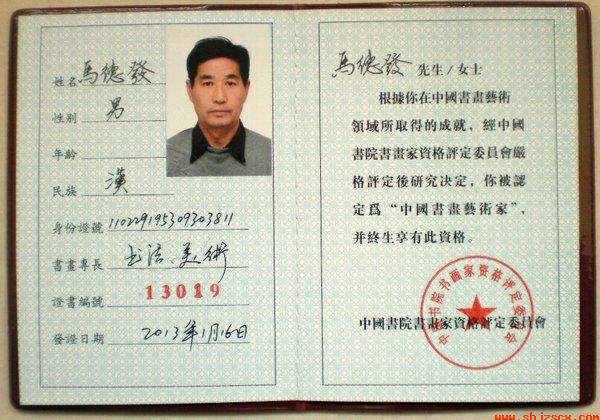 姓名 馬德發
性別 男
年齡
民族 漢
身份證號 110229195309303811
書畫專長 书法、美術
證書編號 13019
發證日期 2013年1月16日
馬德發 先生/女士
根據你在中國書畫藝術
領域所取得的成就，經中國
書院書畫家資格評定委員會嚴
格評定後研究決定，你被認
定爲“中國書畫藝術家”，
并終生享有此資格。
中國書院書畫家資格評定委員會
中國书院书画家资格评定委员会
www.shjzscx.com